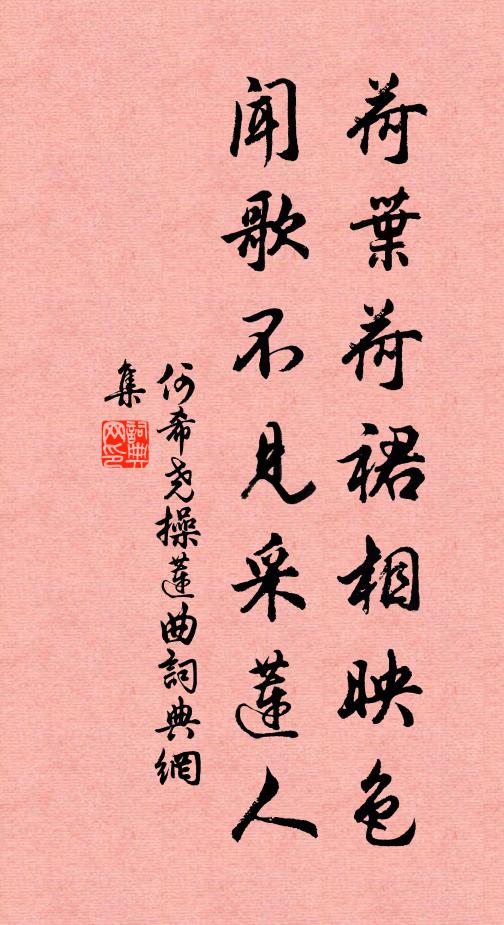 荷葉荷裙相映色
聞歌不見采蓮人
何希堯操蓮曲詞典網
集
詞典
网印